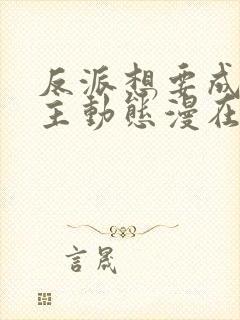 反派想要成
主動態漫在
言晟